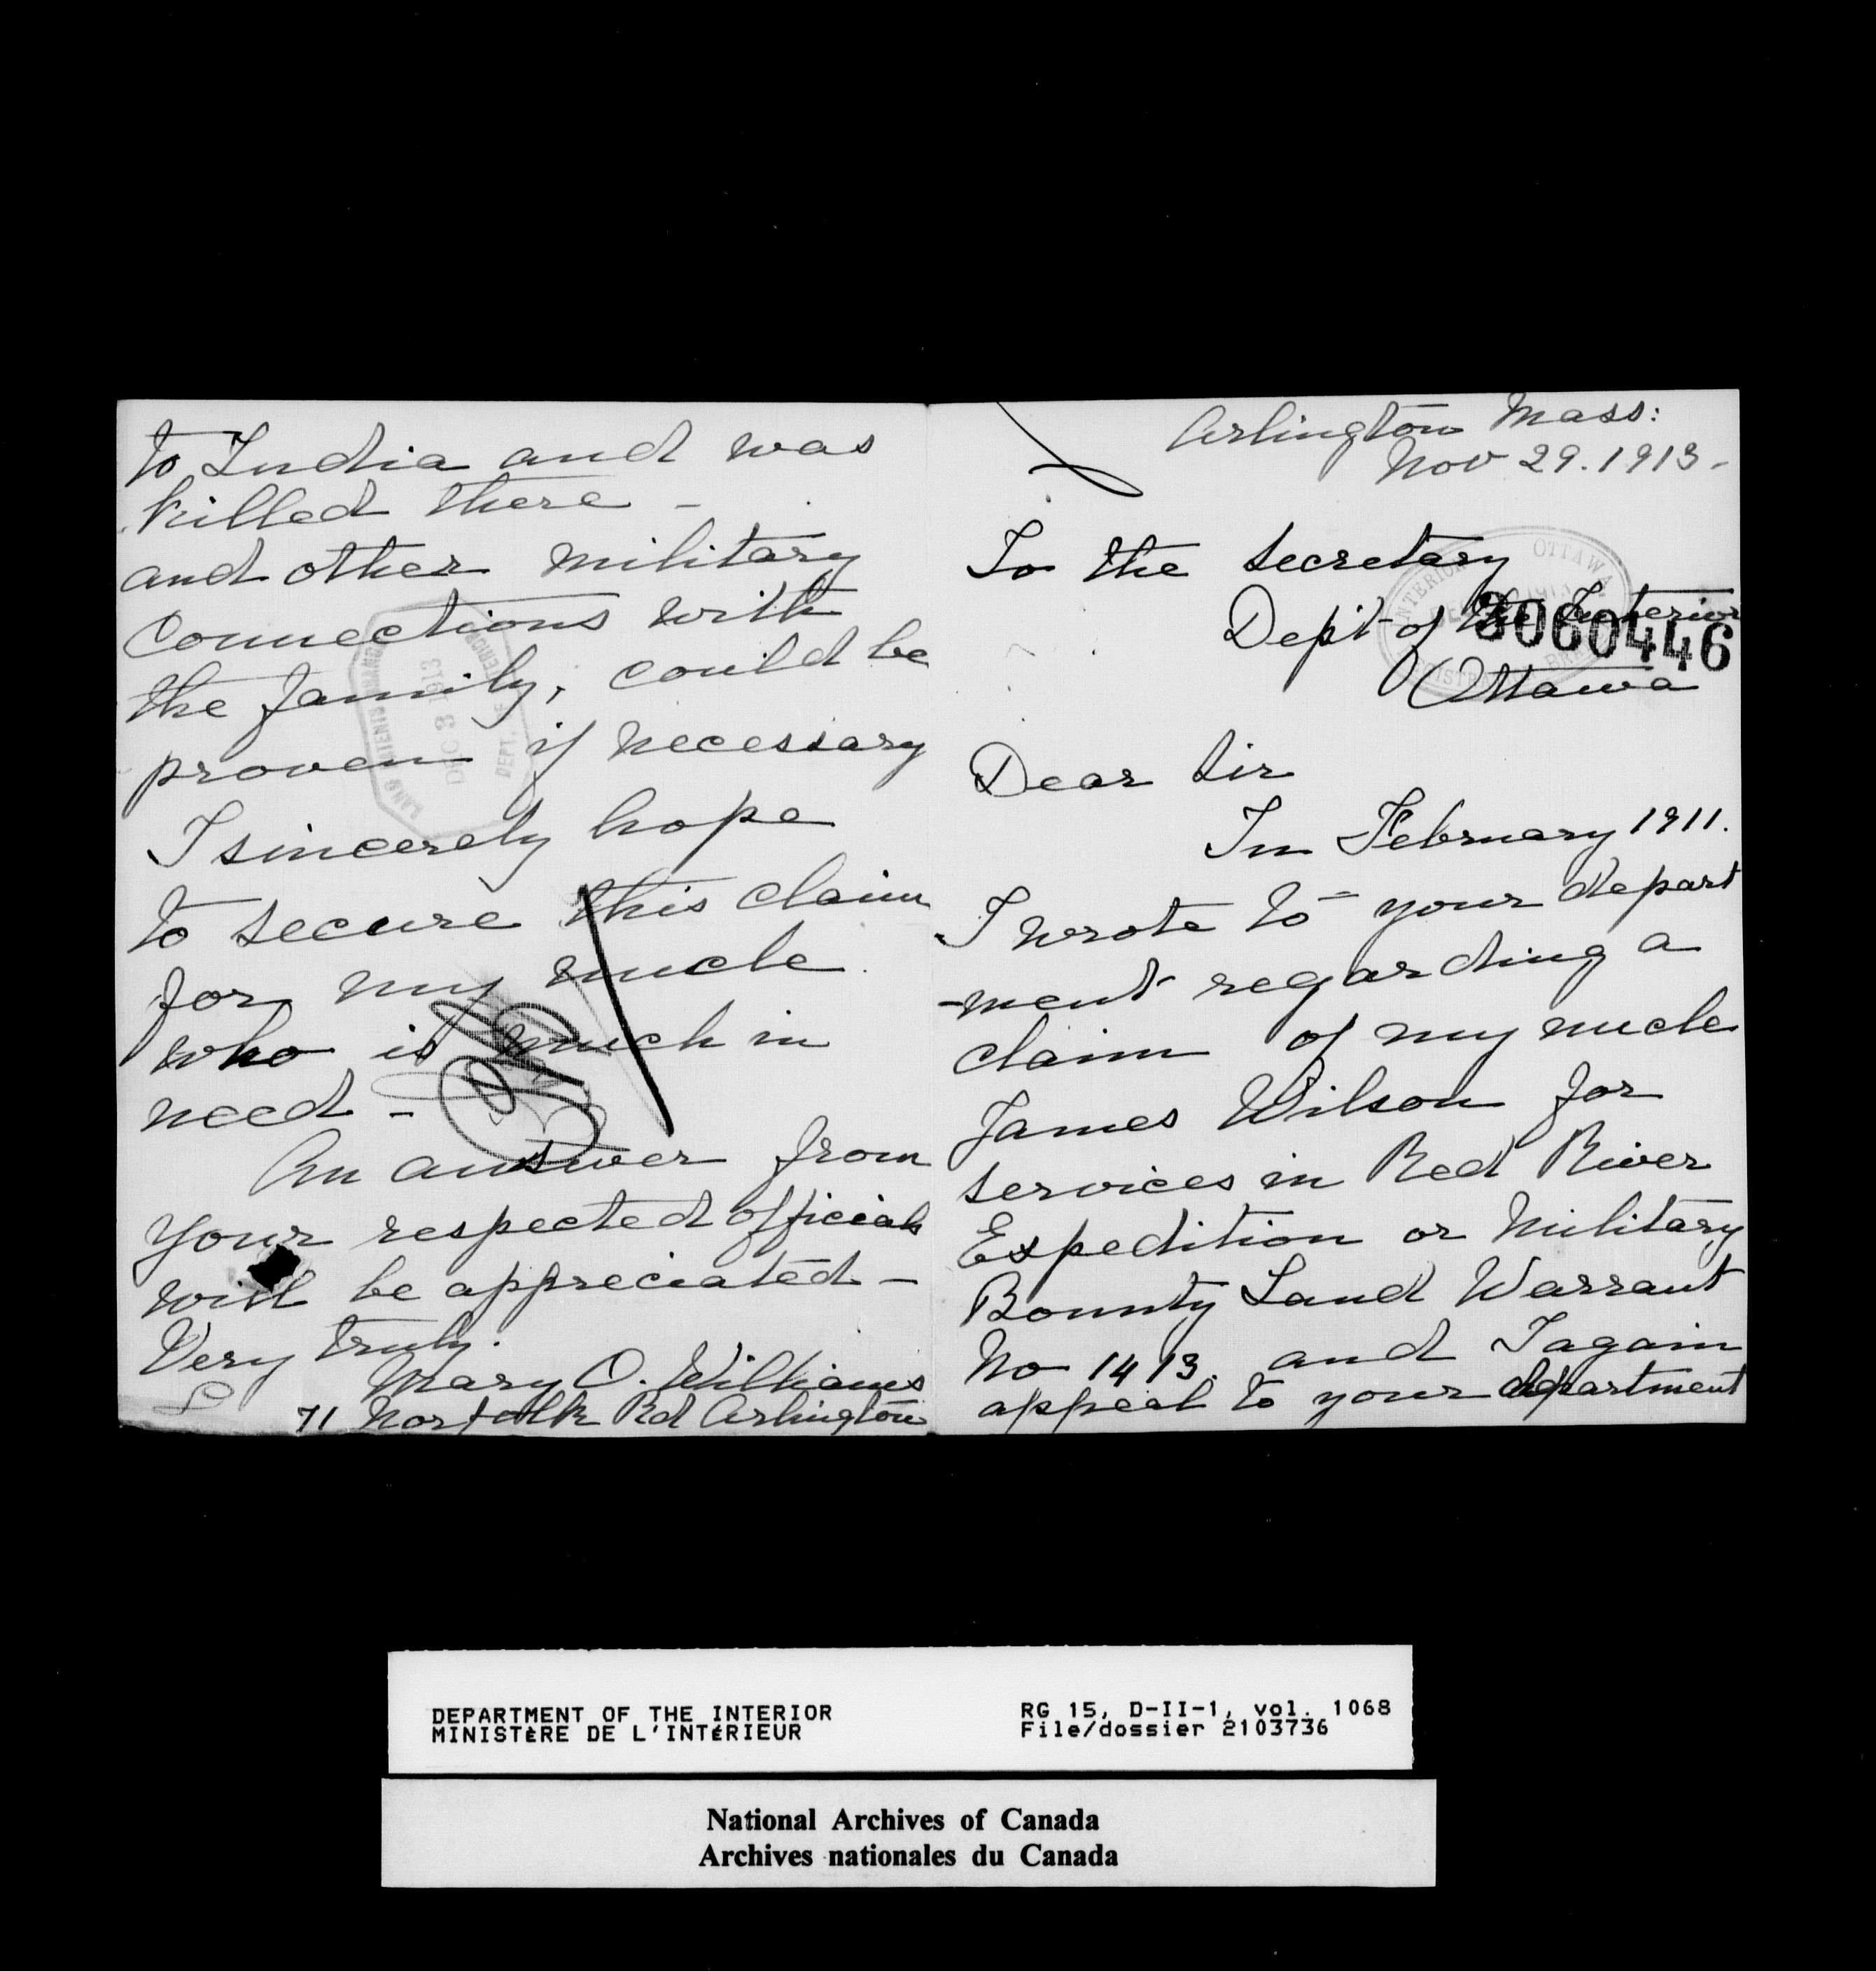 Arlington Mass:
Nov 29. 1913-
To the Secretary
Dep't of the Interior
3060446
Ottawa
Dear Sir
In February 1911.
I wrote to your depart
-ment regarding a
claim of my uncle
James Wilson for
services in Red River
Expedition or Military
Bounty Land Warrant
No 1413. and I again
appeal to your department
to India and was
killed there -
and other military
connections with
the family, could be
proven if necessary
I sincerely hope
to secure this claim
for my uncle
who is much in
need -
An answer from
your respected officials
will be appreciated -
Very truly.
Mary O. Williams
71 Norfolk Rd Arlington
LAND PATENTS BRANCH
DEC 3 1913
DEPT. OF INTERIOR
INTERIOR OTTAWA
DEPARTMENT OF THE INTERIOR
MINISTÈRE DE L'INTÉRIEUR
RG 15, D-II-1, vol. 1068
File/dossier 2103736
National Archives of Canada
Archives nationales du Canada